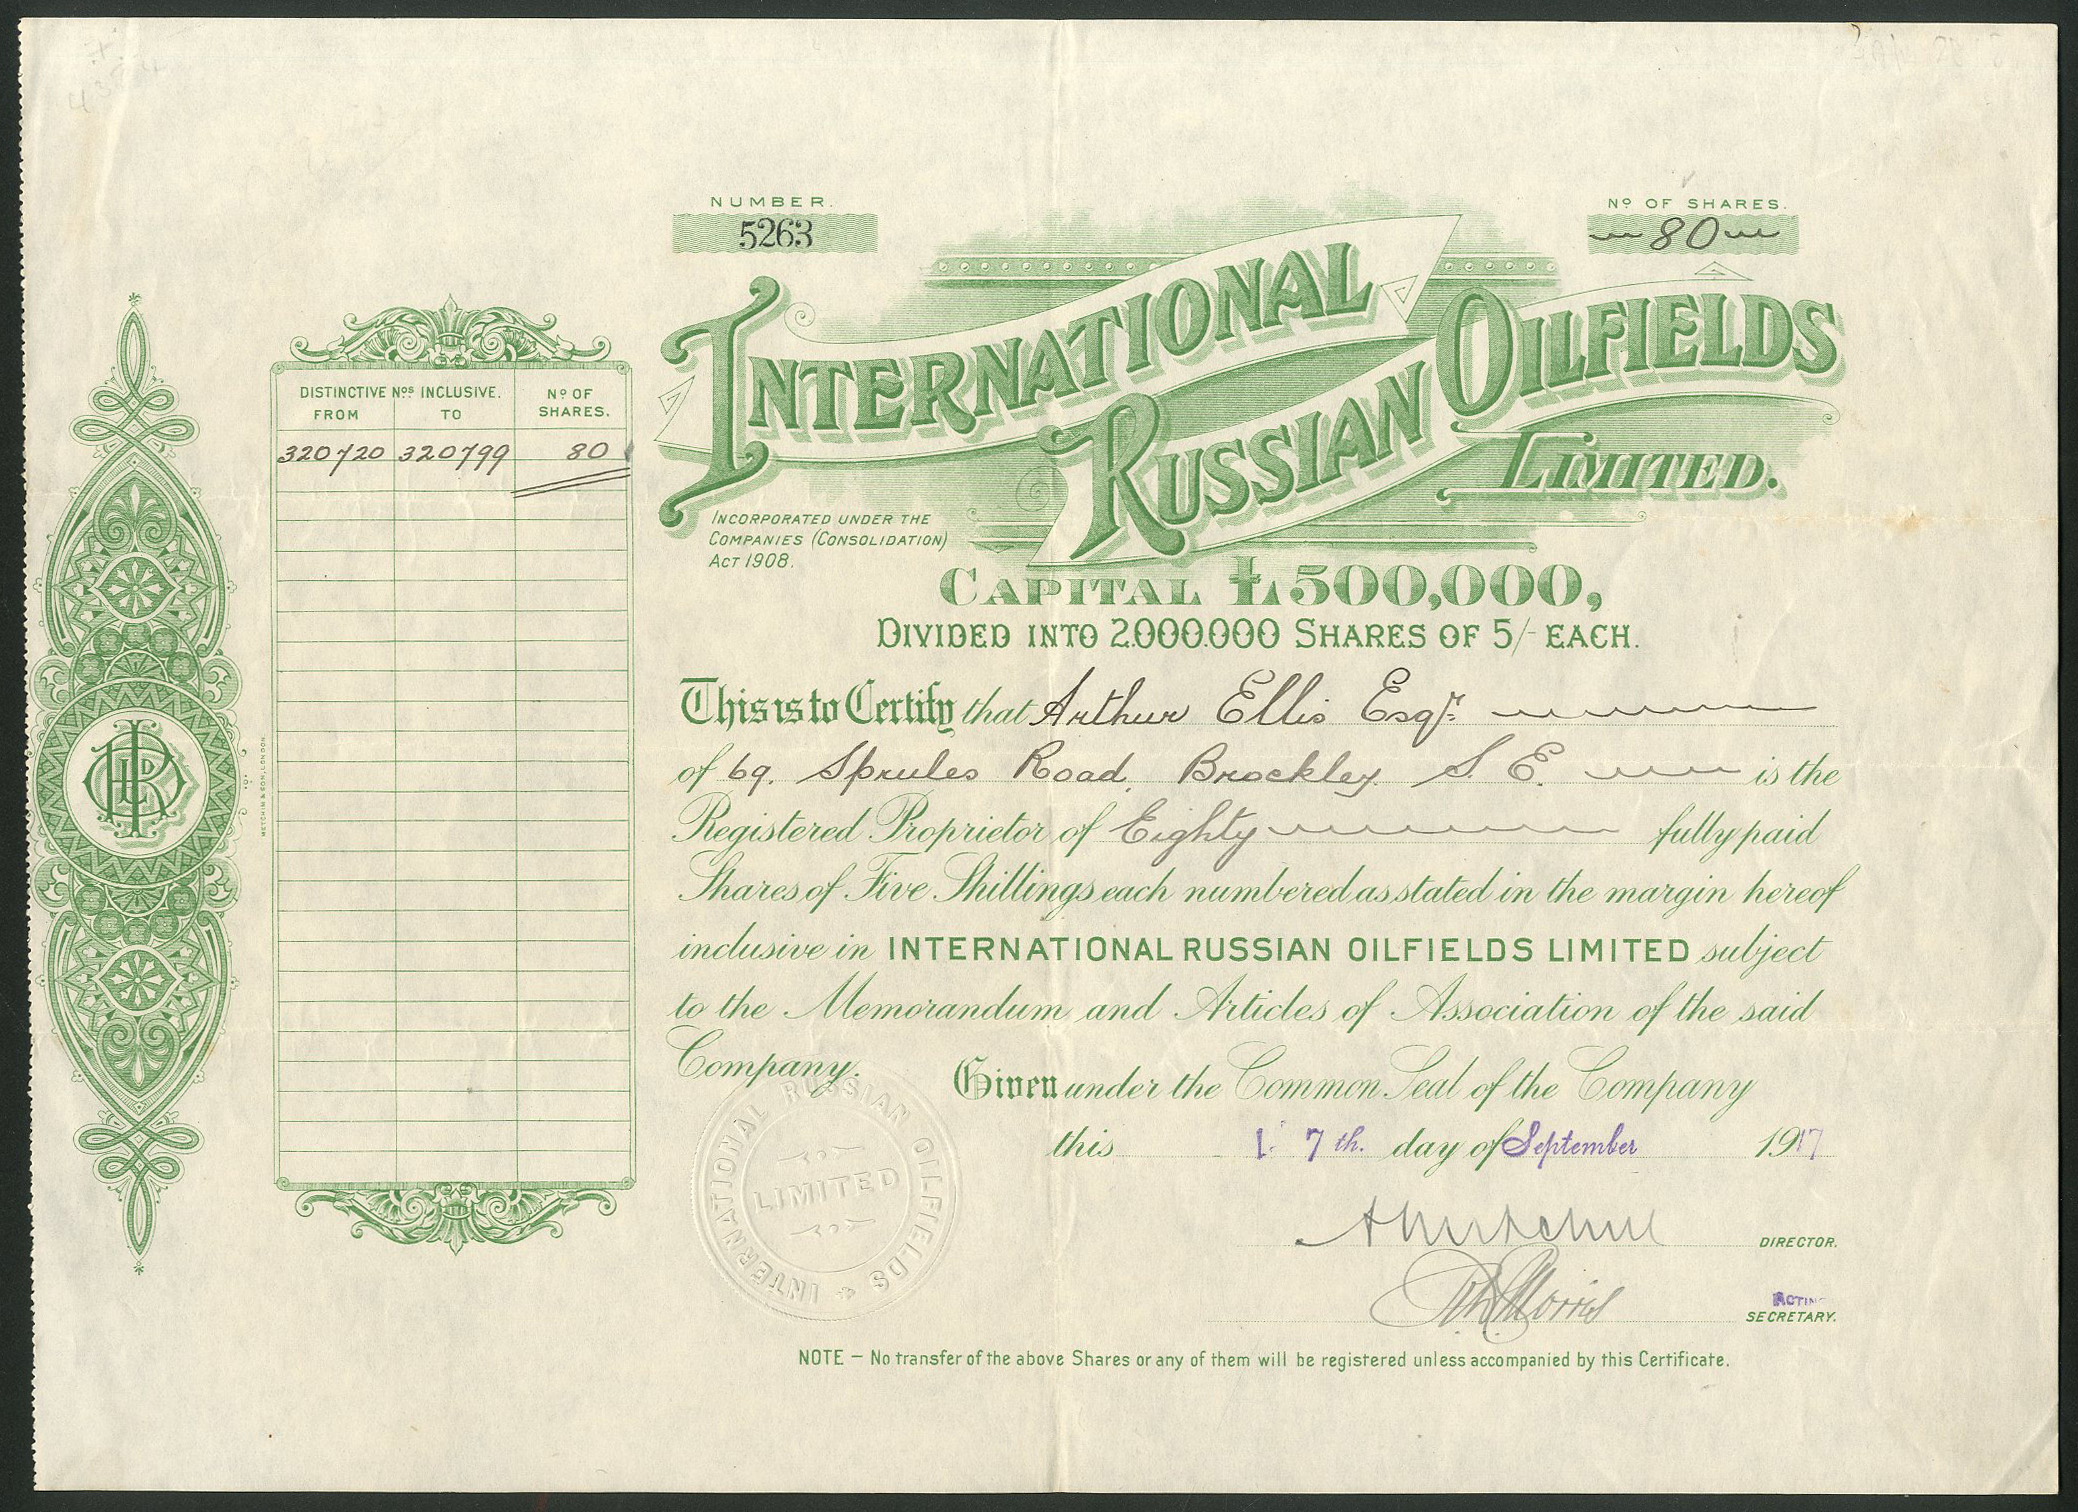 NUMBER.
5263
Nº OF SHARES.
80
INTERNATIONAL
RUSSIAN OILFIELDS
LIMITED.
INCORPORATED UNDER THE
COMPANIES (CONSOLIDATION)
ACT 1908.
CAPITAL £500,000,
DIVIDED INTO 2.000.000 SHARES OF 5/- EACH.
DISTINCTIVE Nºs INCLUSIVE.
FROM TO
Nº OF
SHARES.
320720 320799 80
METCHIM & SON, LONDON.
This is to Certify that Arthur Ellis Esqr.
of 69. Sprules Road, Brockley. S. E. is the
Registered Proprietor of Eighty fully paid
Shares of Five Shillings each numbered as stated in the margin hereof
inclusive in INTERNATIONAL RUSSIAN OILFIELDS LIMITED subject
to the Memorandum and Articles of Association of the said
Company.
Given under the Common Seal of the Company
this 1 7th. day of September 1917
INTERNATIONAL RUSSIAN OILFIELDS
LIMITED
DIRECTOR.
ACTING
SECRETARY.
NOTE – No transfer of the above Shares or any of them will be registered unless accompanied by this Certificate.